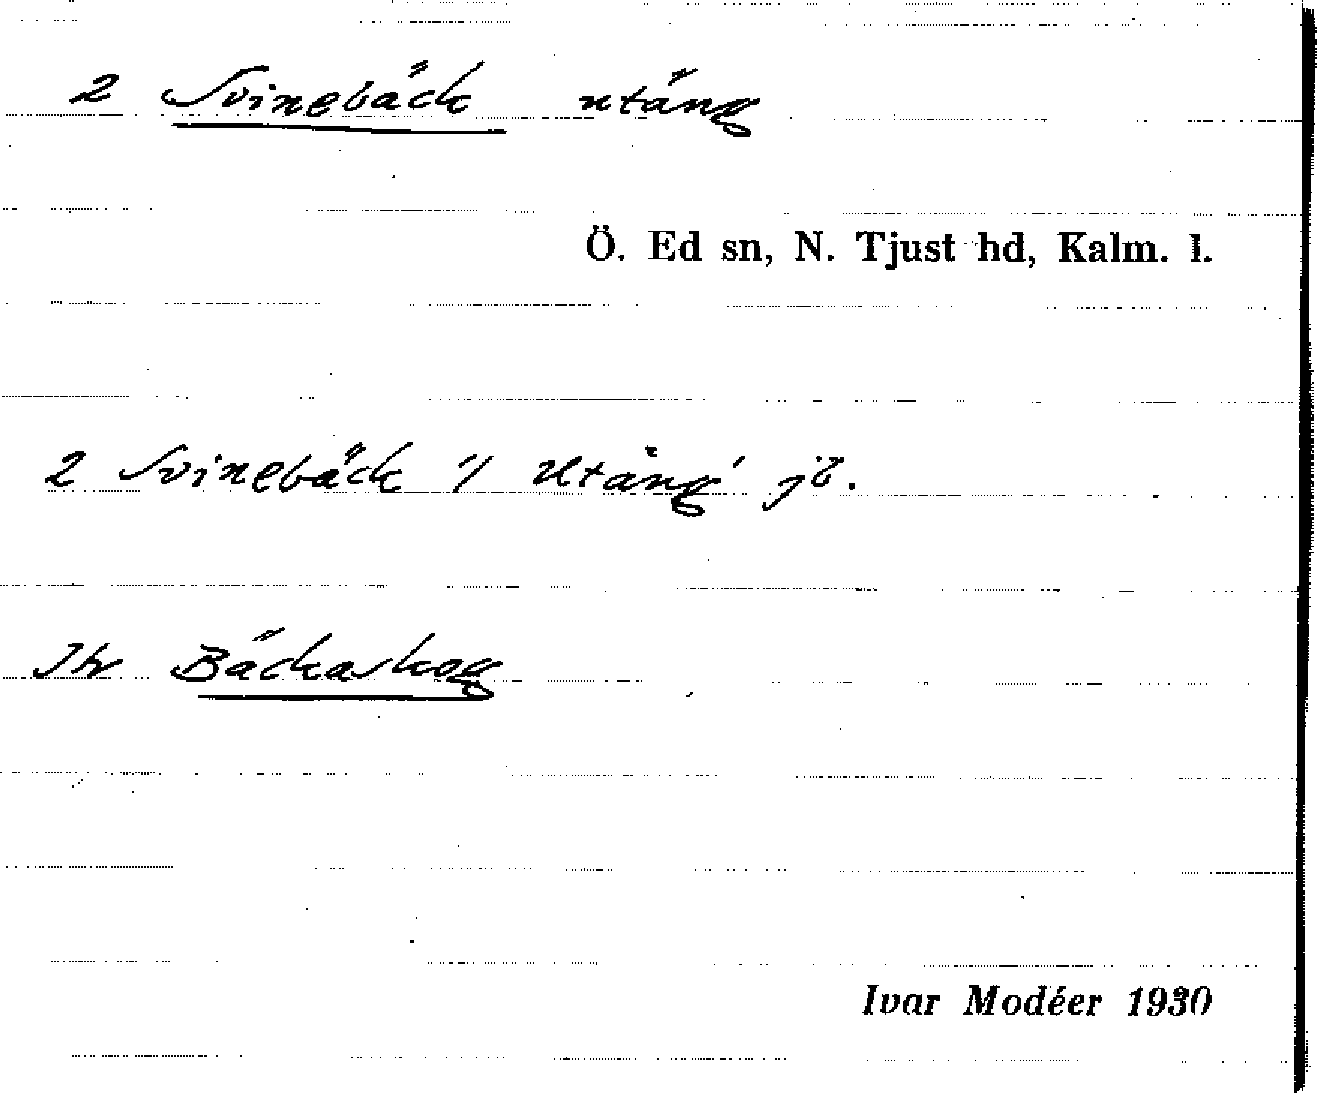 2 Svinebäck utäng
Ö. Ed sn, N. Tjust hd, Kalm. l.
2 Svinebäck 1/ Utäng' jb.
Jfr Bäckaskog
Ivar Modéer 1930